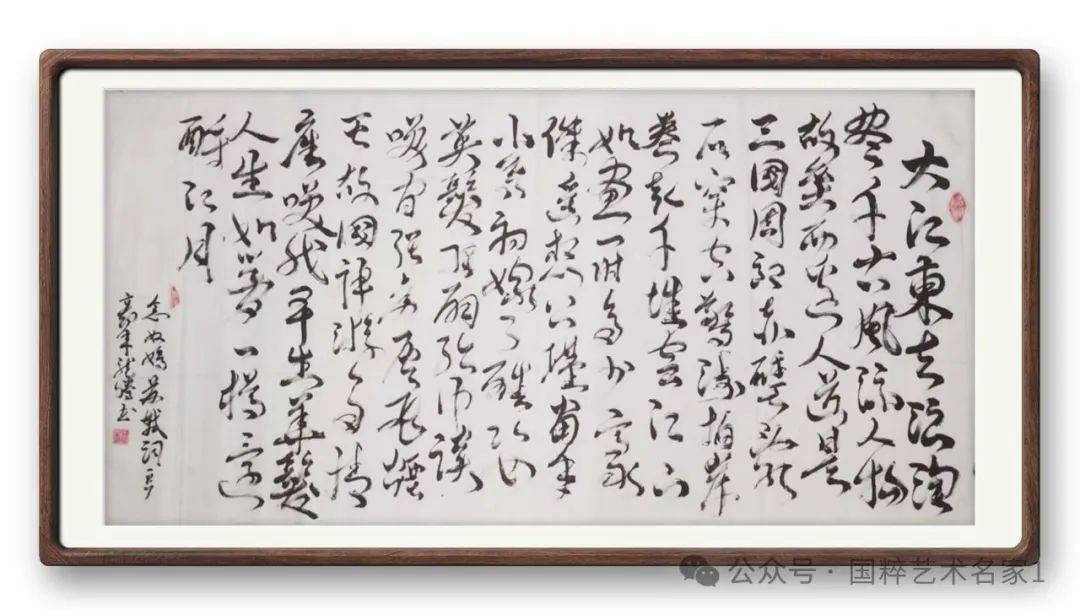 大江東去浪淘
尽千古風流人物
故壘西边人道是
三國周郎赤壁乱
石穿空驚濤拍岸
卷起千堆雪江山
如画一时多少豪
傑遥想公瑾當年
小喬初嫁了雄姿
英發羽扇纶巾談
笑间强虏灰飞煙
灭故國神游多情
應笑我早生華髮
人生如夢一樽还
酹江月
念奴嬌苏軾詞
公众号 · 国粹艺术名家1